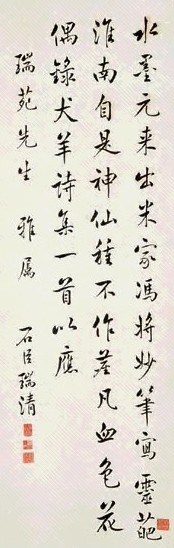 水墨元来出米家馮將妙筆寫靈葩
淮南自是神仙種不作荖凡血色花
偶錄犬羊詩集一首以應
瑞苑先生 雅属
石臣瑞清